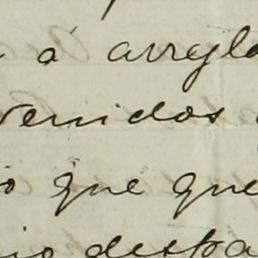 á arregla
venidos
que que
despa